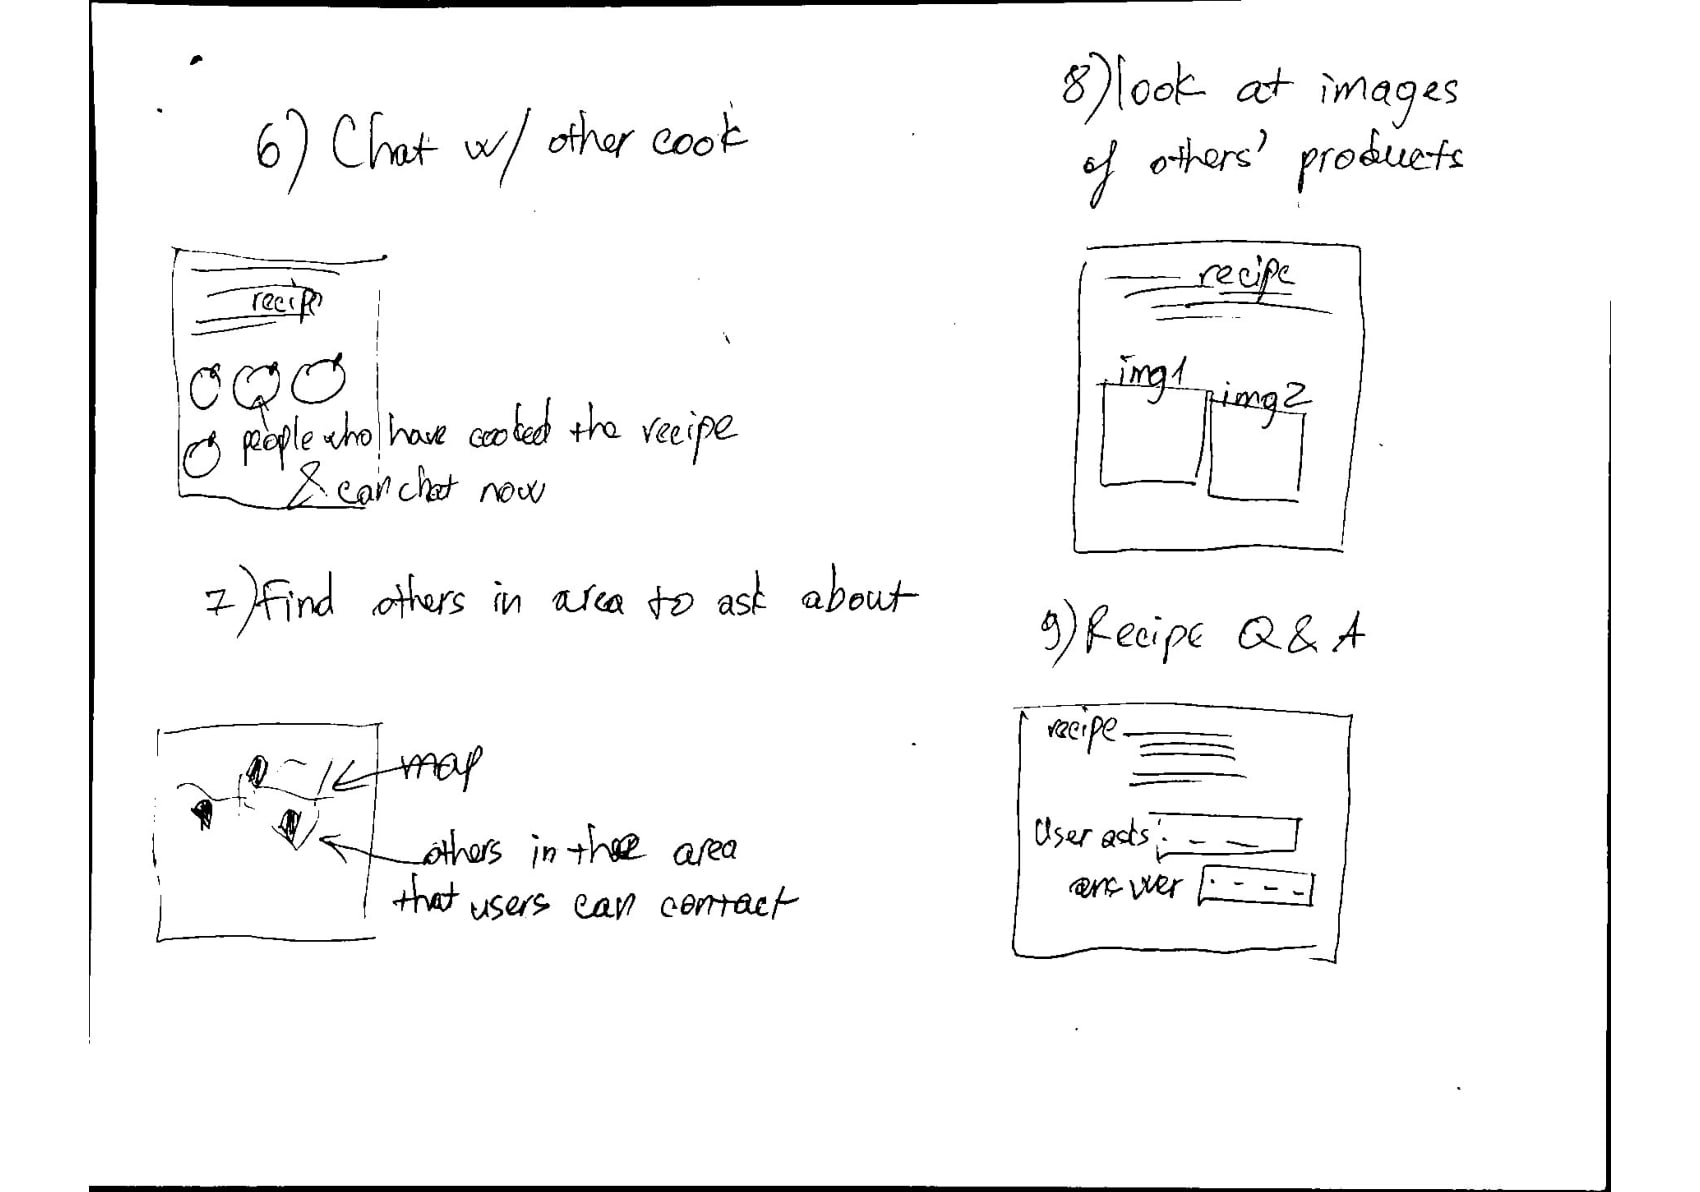 6) Chat w/ other cook
recipe
people who have cooked the recipe
& can chat now
7) Find others in area to ask about
map
others in the area
that users can contact
8) look at images
of others' products
recipe
img1
img2
9) Recipe Q & A
recipe
User asks:
answer